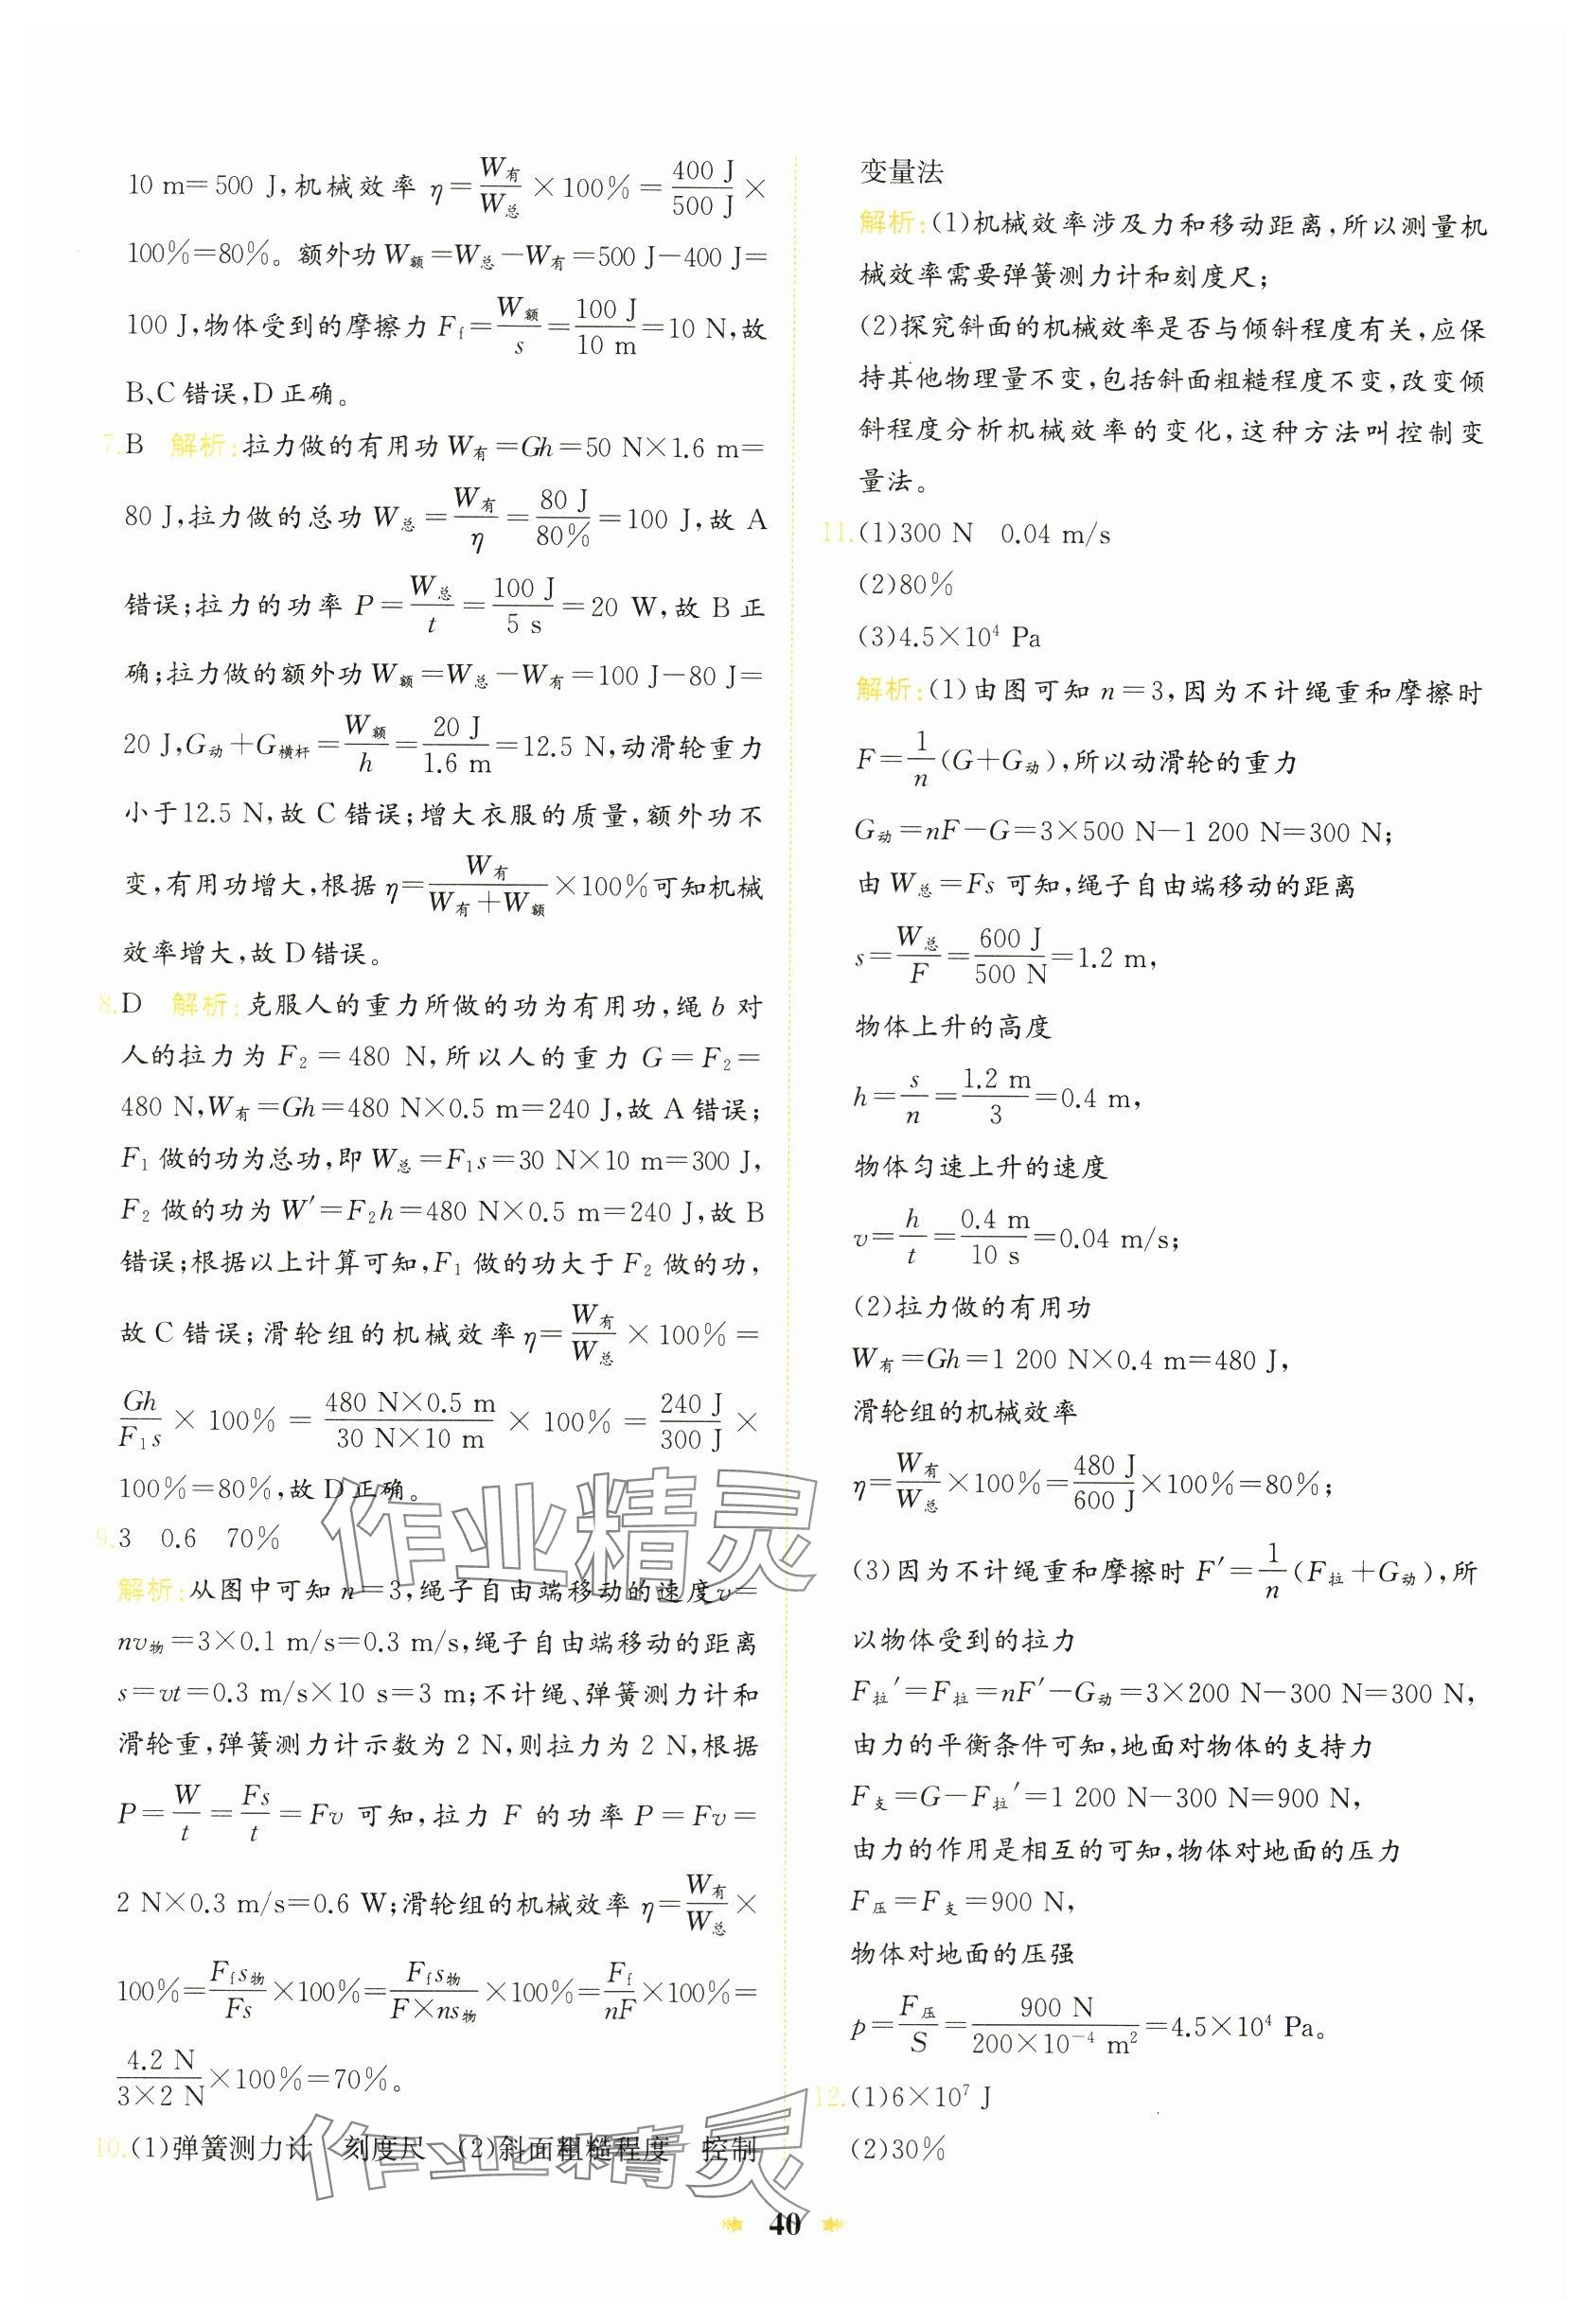 10 m=500 J,机械效率 η=W有/W总×100%=400 J/500 J×
100%=80%。额外功W额=W总-W有=500 J-400 J=
100 J,物体受到的摩擦力 Ff=W额/s=100 J/10 m=10 N,故
B、C错误,D正确。
7.B 解析:拉力做的有用功W有=Gh=50 N×1.6 m=
80 J,拉力做的总功 W总=W有/η=80 J/80%=100 J,故 A
错误;拉力的功率 P=W总/t=100 J/5 s=20 W,故 B 正
确;拉力做的额外功W额=W总-W有=100 J-80 J=
20 J,G动+G横杆=W额/h=20 J/1.6 m=12.5 N,动滑轮重力
小于12.5 N,故 C 错误;增大衣服的质量,额外功不
变,有用功增大,根据η=W有/(W有+W额)×100%可知机械
效率增大,故D错误。
8.D 解析:克服人的重力所做的功为有用功,绳 b 对
人的拉力为 F₂=480 N,所以人的重力 G=F₂=
480 N,W有=Gh=480 N×0.5 m=240 J,故A错误;
F₁ 做的功为总功,即 W总=F₁s=30 N×10 m=300 J,
F₂ 做的功为 W′=F₂h=480 N×0.5 m=240 J,故 B
错误;根据以上计算可知,F₁ 做的功大于 F₂ 做的功,
故C错误;滑轮组的机械效率η=W有/W总×100%=
Gh/F₁s×100%=480 N×0.5 m/30 N×10 m×100%=240 J/300 J×
100%=80%,故D正确。
9.3 0.6 70%
解析:从图中可知n=3,绳子自由端移动的速度v=
nv物=3×0.1 m/s=0.3 m/s,绳子自由端移动的距离
s=vt=0.3 m/s×10 s=3 m;不计绳、弹簧测力计和
滑轮重,弹簧测力计示数为 2 N,则拉力为 2 N,根据
P=W/t=Fs/t=Fv 可知,拉力 F 的功率 P=Fv=
2 N×0.3 m/s=0.6 W;滑轮组的机械效率 η=W有/W总×
100%=Ffs物/Fs×100%=Ffs物/F×ns物×100%=Ff/nF×100%=
4.2 N/3×2 N×100%=70%。
10.(1)弹簧测力计 刻度尺 (2)斜面粗糙程度 控制
变量法
解析:(1)机械效率涉及力和移动距离,所以测量机
械效率需要弹簧测力计和刻度尺;
(2)探究斜面的机械效率是否与倾斜程度有关,应保
持其他物理量不变,包括斜面粗糙程度不变,改变倾
斜程度分析机械效率的变化,这种方法叫控制变
量法。
11.(1)300 N 0.04 m/s
(2)80%
(3)4.5×10⁴ Pa
解析:(1)由图可知 n=3,因为不计绳重和摩擦时
F=1/n(G+G动),所以动滑轮的重力
G动=nF-G=3×500 N-1 200 N=300 N;
由 W总=Fs 可知,绳子自由端移动的距离
s=W总/F=600 J/500 N=1.2 m,
物体上升的高度
h=s/n=1.2 m/3=0.4 m,
物体匀速上升的速度
v=h/t=0.4 m/10 s=0.04 m/s;
(2)拉力做的有用功
W有=Gh=1 200 N×0.4 m=480 J,
滑轮组的机械效率
η=W有/W总×100%=480 J/600 J×100%=80%;
(3)因为不计绳重和摩擦时 F′=1/n(F拉+G动),所
以物体受到的拉力
F拉′=F拉=nF′-G动=3×200 N-300 N=300 N,
由力的平衡条件可知,地面对物体的支持力
F支=G-F拉′=1 200 N-300 N=900 N,
由力的作用是相互的可知,物体对地面的压力
F压=F支=900 N,
物体对地面的压强
p=F压/S=900 N/200×10⁻⁴ m²=4.5×10⁴ Pa。
12.(1)6×10⁷ J
(2)30%
作业精灵
作业精灵
40